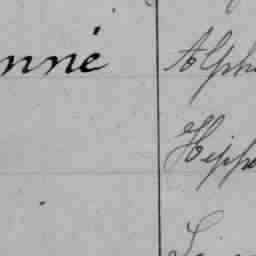 nné Alph
Hippo